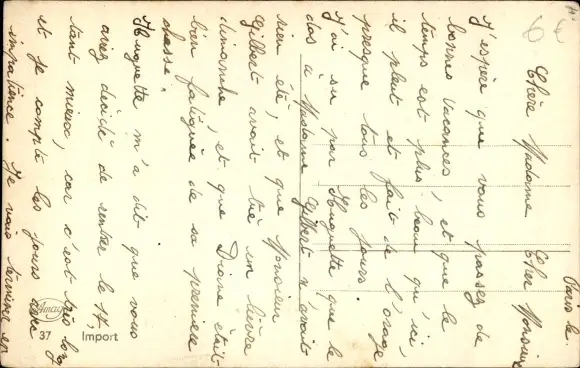 Paris le
Chère Madame Cher Monsieur
J'espère que vous passez de
bonnes vacances, et que le
temps est plus beau qu'ici,
il pleut et fait de l'orage
presque tous les jours.
J'ai su par Huguette que le
das à Madame Gilbert n'avait
rien été, et que Monsieur
Gilbert avait tué un lièvre
dimanche, et que Diane était
bien fatiguée de sa première
chasse.
Huguette m'a dit que vous
aviez décidé de rentrer le 17,
tant mieux, car c'est très long
et je compte les jours avec
impatience. Je vais terminer en
Amag
37 Import